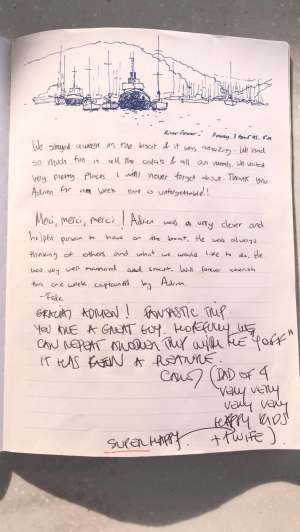 We stayed a week in the boat & it was amazing. We had
so much fun in all the and all our meals. We visited
very pretty places I will never forget about. Thank you
Adrien for a week that is unforgettable!!
Merci, merci, merci! Adrien was a very clever and
helpful person to have on the boat. He was always
thinking of others and what we would like to do. He
was very well mannered and smart. Will forever cherish
this one week captained by Adrien.
GRACIAS ADRIEN! FANTASTIC TRIP
YOU ARE A GREAT GUY. HOPEFULLY WE
CAN REPEAT ANOTHER TRIP WITH ME "OFF"
IT HAS BEEN A PLEASURE.
(DAD OF 4
VERY VERY
VERY VERY
HAPPY KIDS
+ 1 WIFE)
SUPER HAPPY